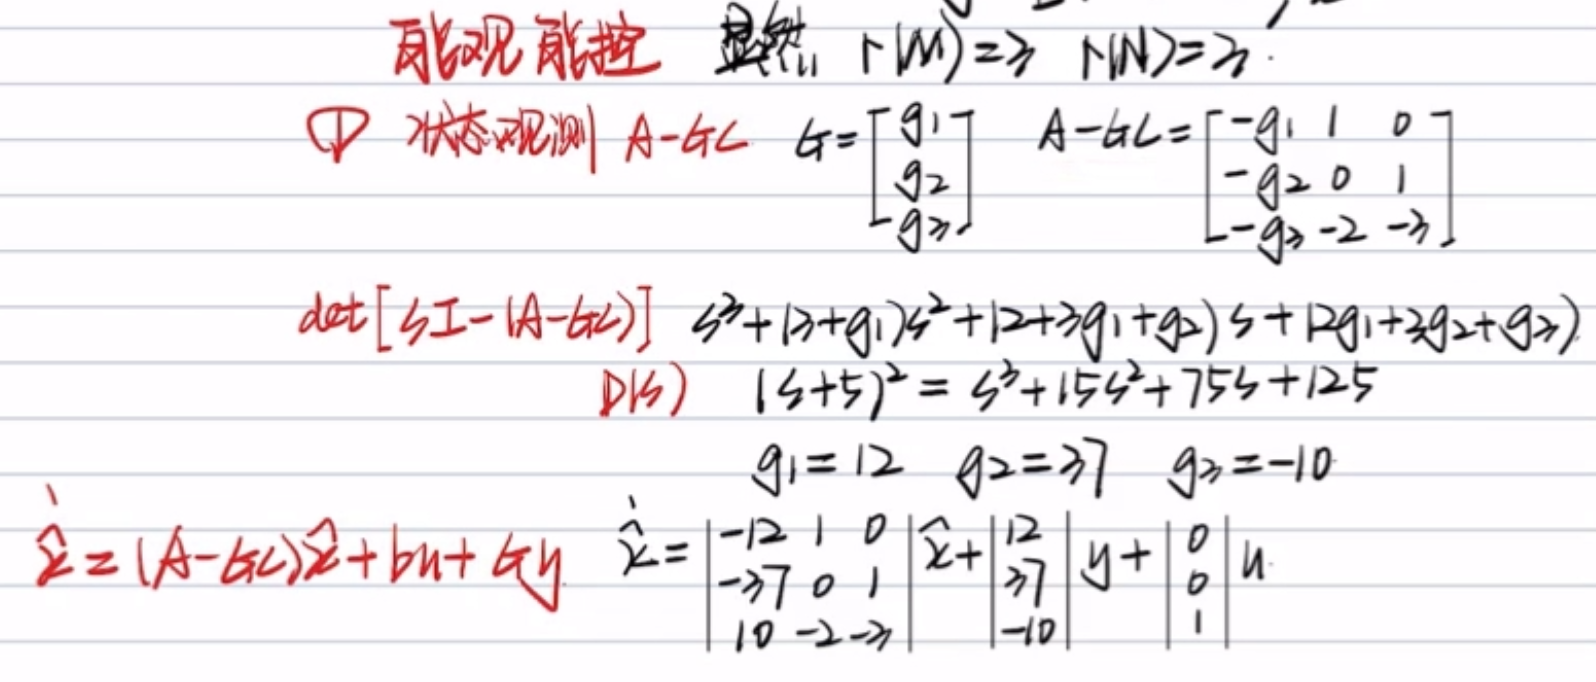 能观 能控 显然 r(M)=3 r(N)=3.
① 状态观测 A-GC G=[g1 g2 g3] A-GC=[-g1 1 0
-g2 0 1
-g3 -2 -3]
det[sI-(A-GC)] s³+(3+g1)s²+(2+3g1+g2)s+(2g1+3g2+g3)
D(s) (s+5)²=s³+15s²+75s+125
g1=12 g2=37 g3=-10
x̂̇=(A-GC)x̂+bu+Gy x̂̇=|-12 1 0|x̂+|12|y+|0|u
|-37 0 1| |37| |0|
|10 -2 -3| |-10| |1|